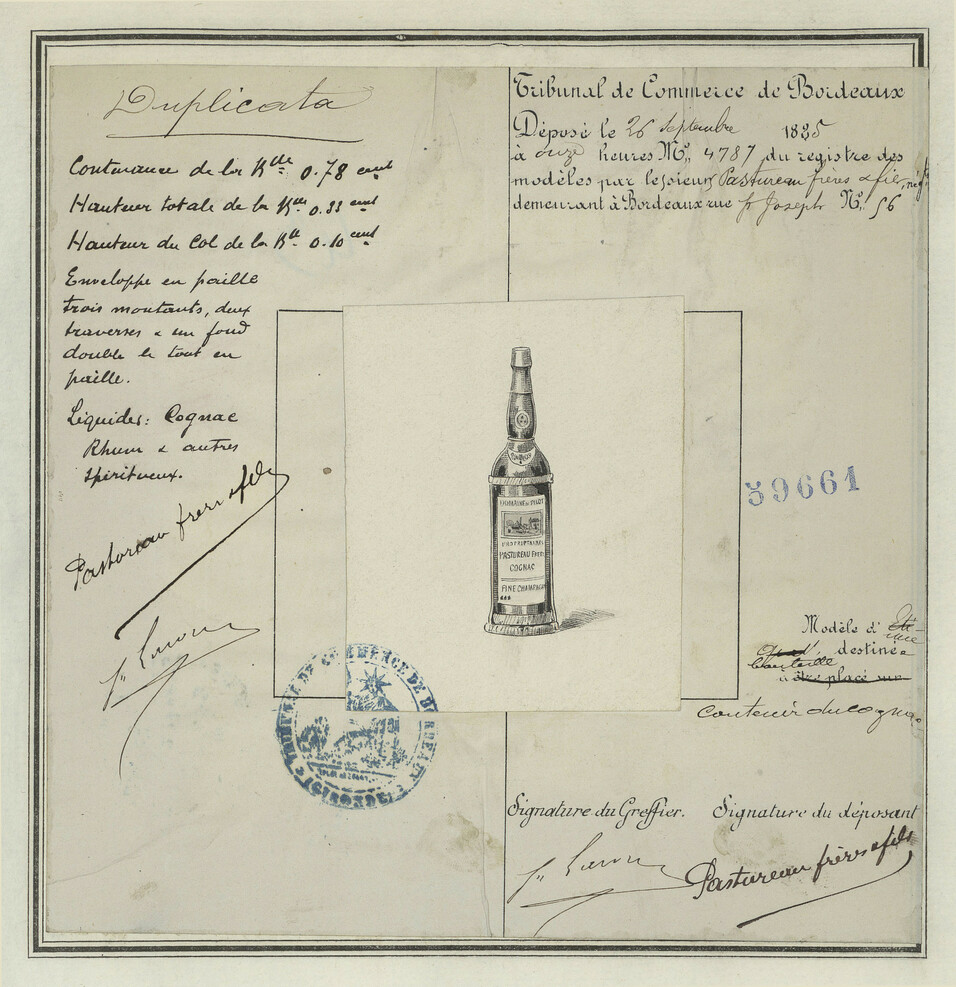 Duplicata
Contenance de la Blle 0.78 cent
Hauteur totale de la Blle 0.33 cent
Hauteur du Col de la Blle 0.10 cent
Enveloppe en paille
trois montants, deux
traverses & un fond
double le tout en
paille.
Liquides: Cognac
Rhum & autres
spiritueux.
Pastureau frères & fils
Tribunal de Commerce de Bordeaux
Déposé le 26 Septembre 1885
à onze heures No. 4787 du registre des
modèles par les sieurs Pastureau frères & fils, négts
demeurant à Bordeaux rue St Joseph No. 56
PASTUREAU FRERES
COGNAC
FINE CHAMPAGNE
59661
Modèle d'
une
bouteille destinée
à être placé sur
Contenir du Cognac
TRIBUNAL DE COMMERCE DE BORDEAUX
(GIRONDE)
Signature du Greffier. Signature du déposant
Pastureau frères & fils